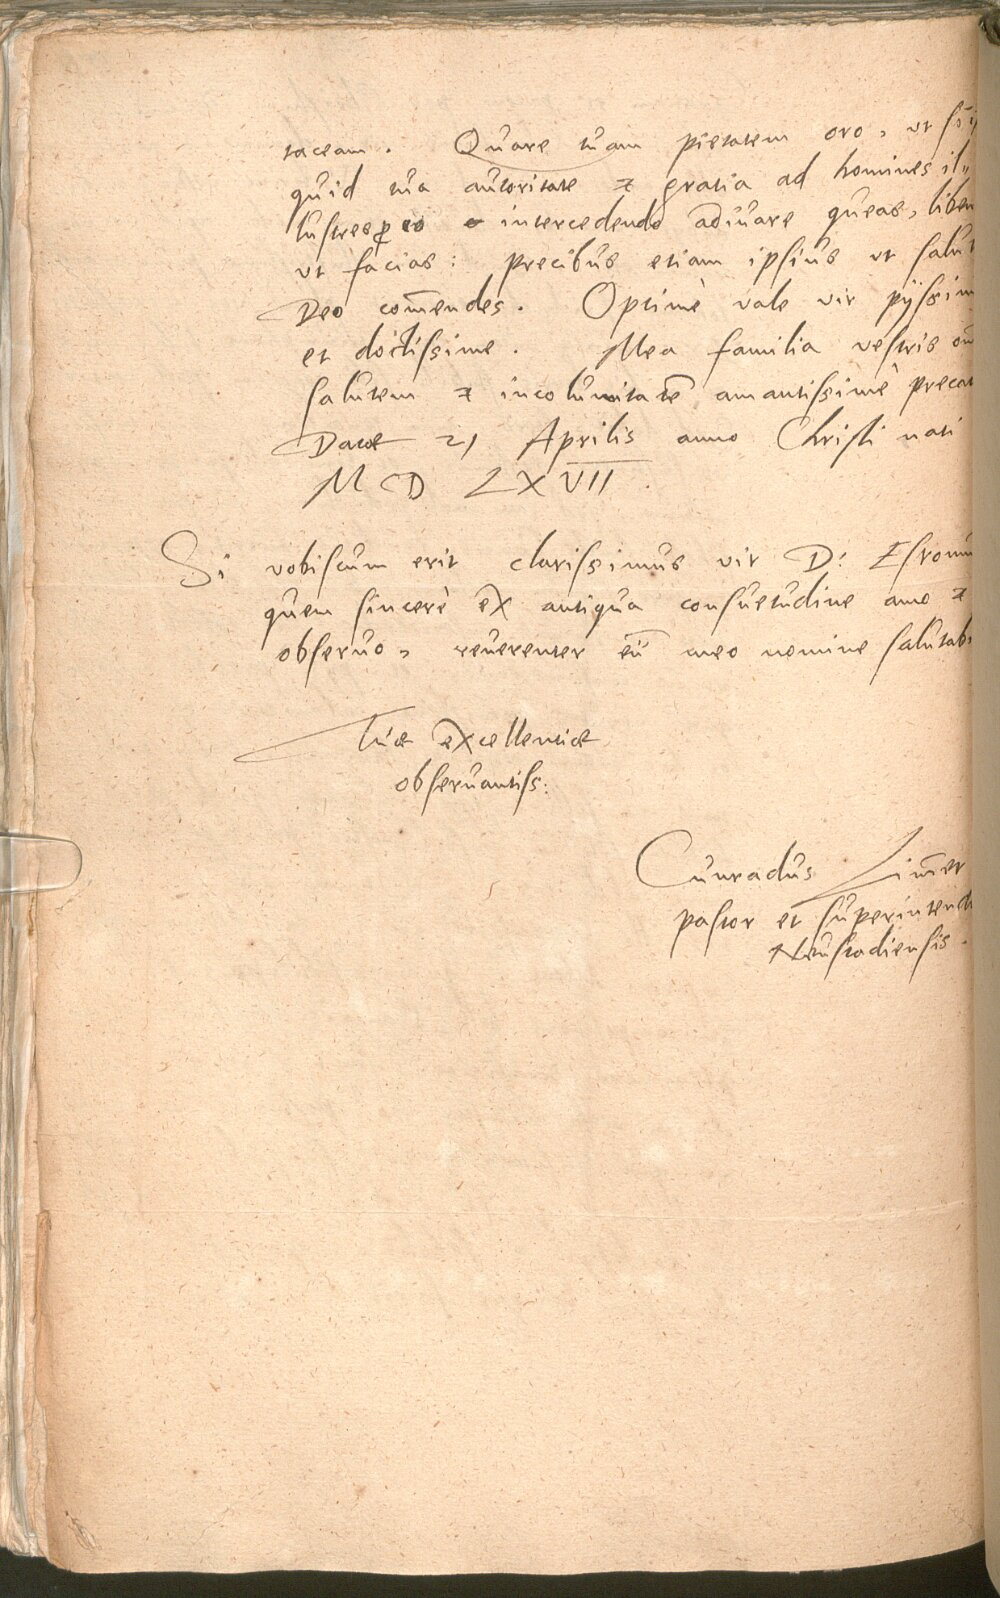 taceam. Quare tuam pietatem oro, ut si
quid tua autoritate & gratia ad homines il„
lustres ꝓ eo intercedendo adiuuare queas, liben
ut facias: precibus etiam ipsius ut salut
Deo com̄endes. Optimè vale vir pijssim
et doctissime. Mea familia vestris om̄
salutem & incolumitatē amantissimè precat
Datæ 21 Aprilis anno Christi nati
M CD LXVII.
Si vobiscum erit clarissimus vir D:
quem sincerè ex antiqua consuetudine amo &
obseruo, reuerenter eū meo nomine salutab
Tuæ excellentiæ
obseruantiss:
Cunradus Zim̄er
pastor et superintend
Neustadiensis.